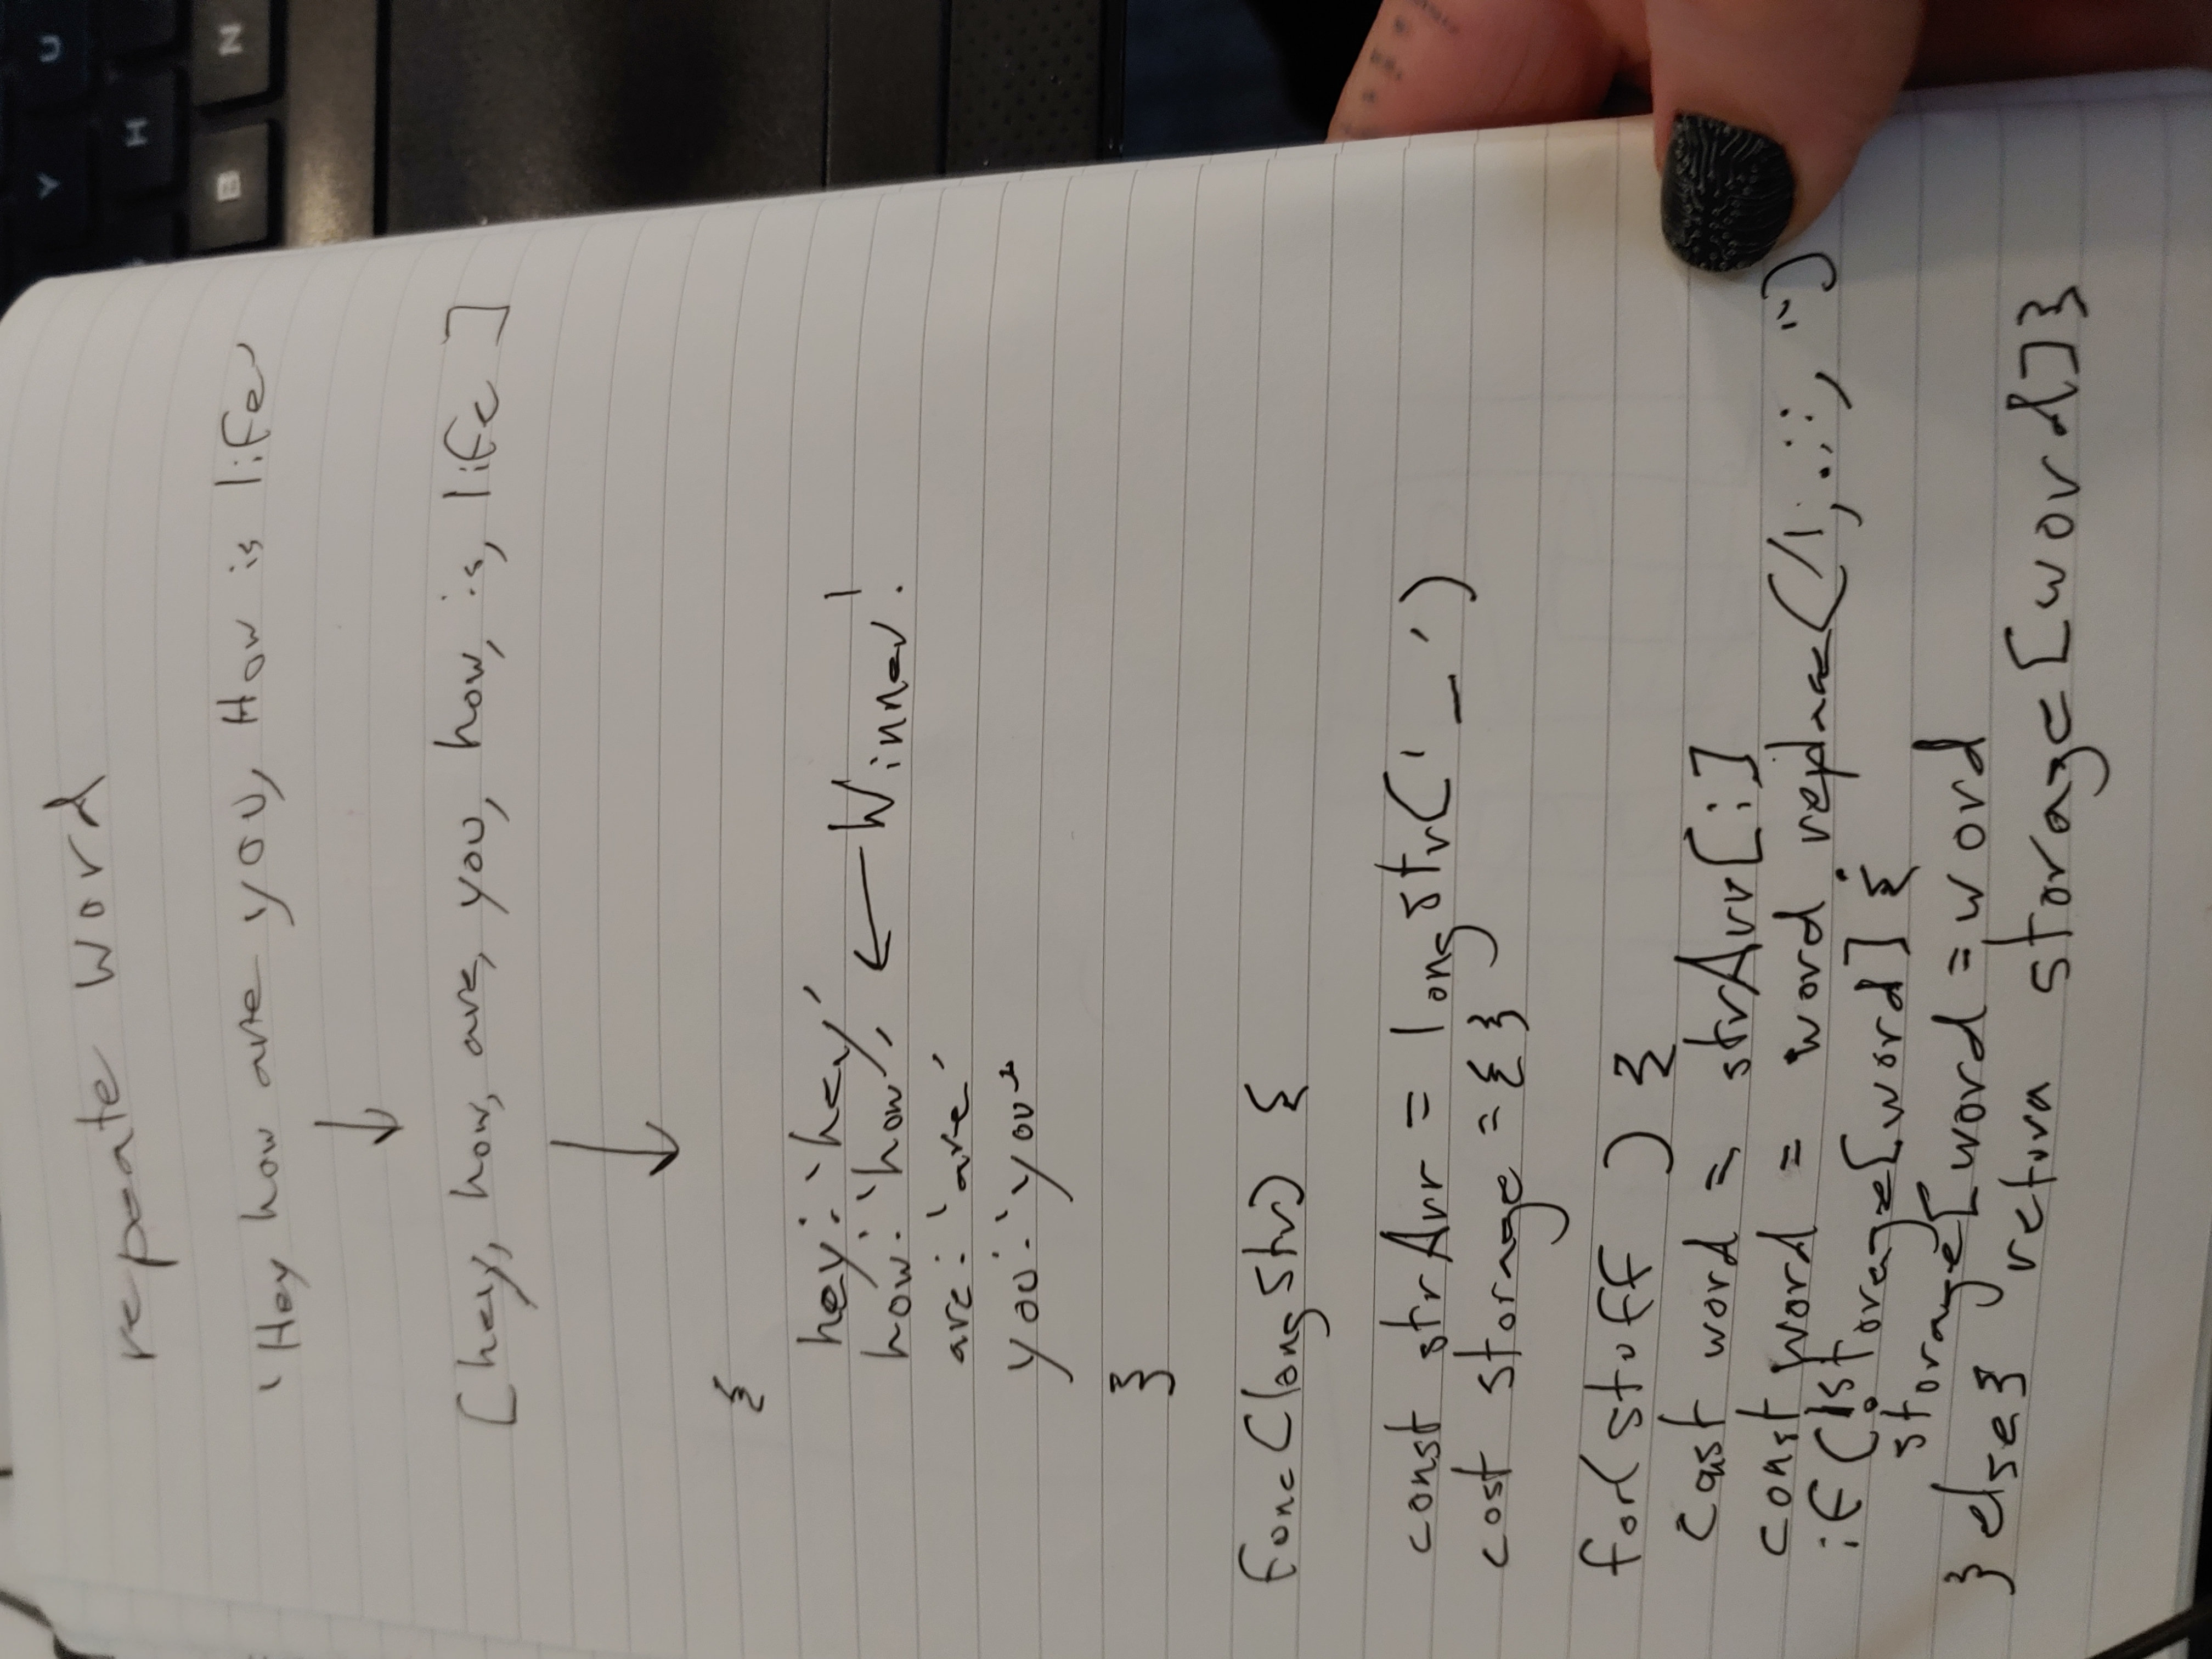 repeate word
'Hey how are you, How is life'
[hey, how, are, you, how, is, life]
{
hey: 'hey'
how: 'how', ← Winner!
are: 'are'
you: 'you'
}
func(longStr) {
const strArr = longstr('_')
cost storage = {}
for(stuff ) {
cast word = strArr[i]
const word = word replace(/!;.:;, "")
if (!storage[word] {
storage[word = word
} else} return storage[word]}
Y U
H
B N